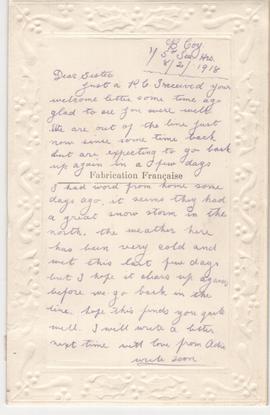 B Coy
1/5th Sea Hrs.
8/2/1918
Dear Sister
Just a P C I received your
welcome letter some time ago
glad to see you were well
We are out of the line just
now since some time back
but are expecting to go back
up again in a few days
Fabrication Française
I had word from home some
days ago, it seems they had
a great snow storm in the
north, the weather here
has been very cold and
wet this last few days
but I hope it clears up again
before we go back in the
line, hope this finds you quite
well. I will write a letter
next time with love from
write soon